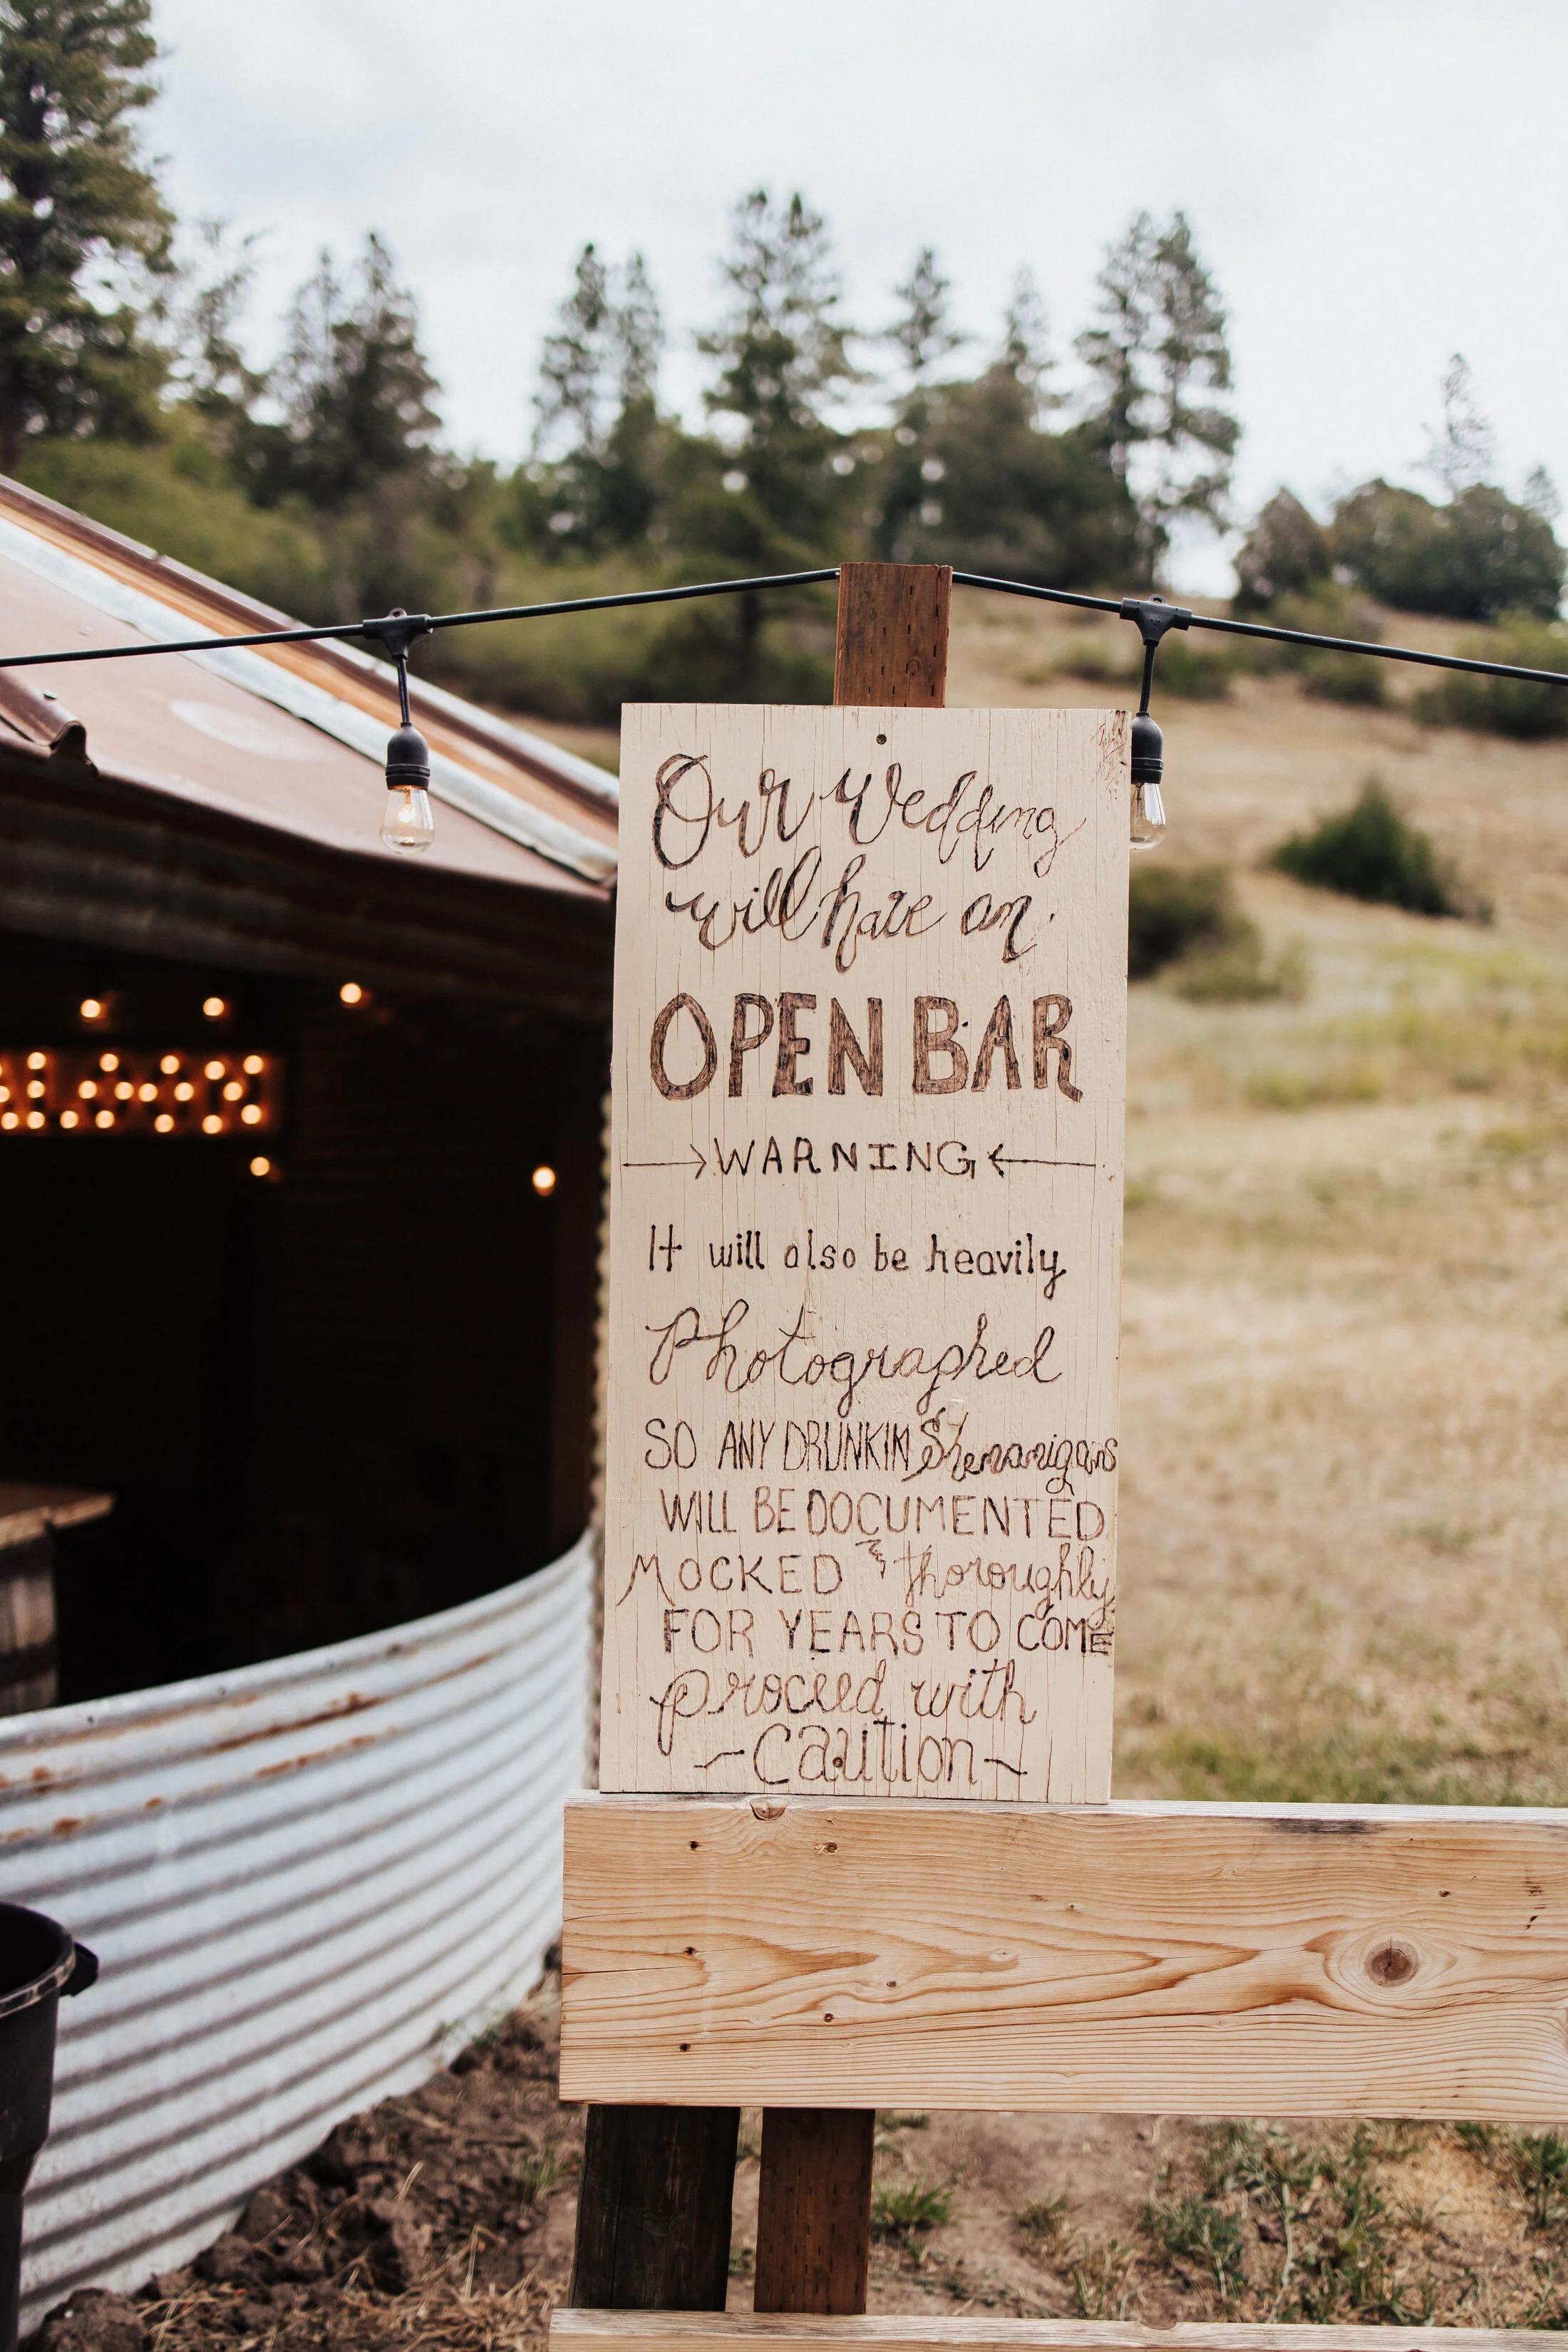 Our Wedding
will have an
OPEN BAR
WARNING
It will also be heavily
Photographed
SO ANY DRUNKIN Shenanigans
WILL BE DOCUMENTED
MOCKED & thoroughly
FOR YEARS TO COME
proceed with
~caution~
ALOON